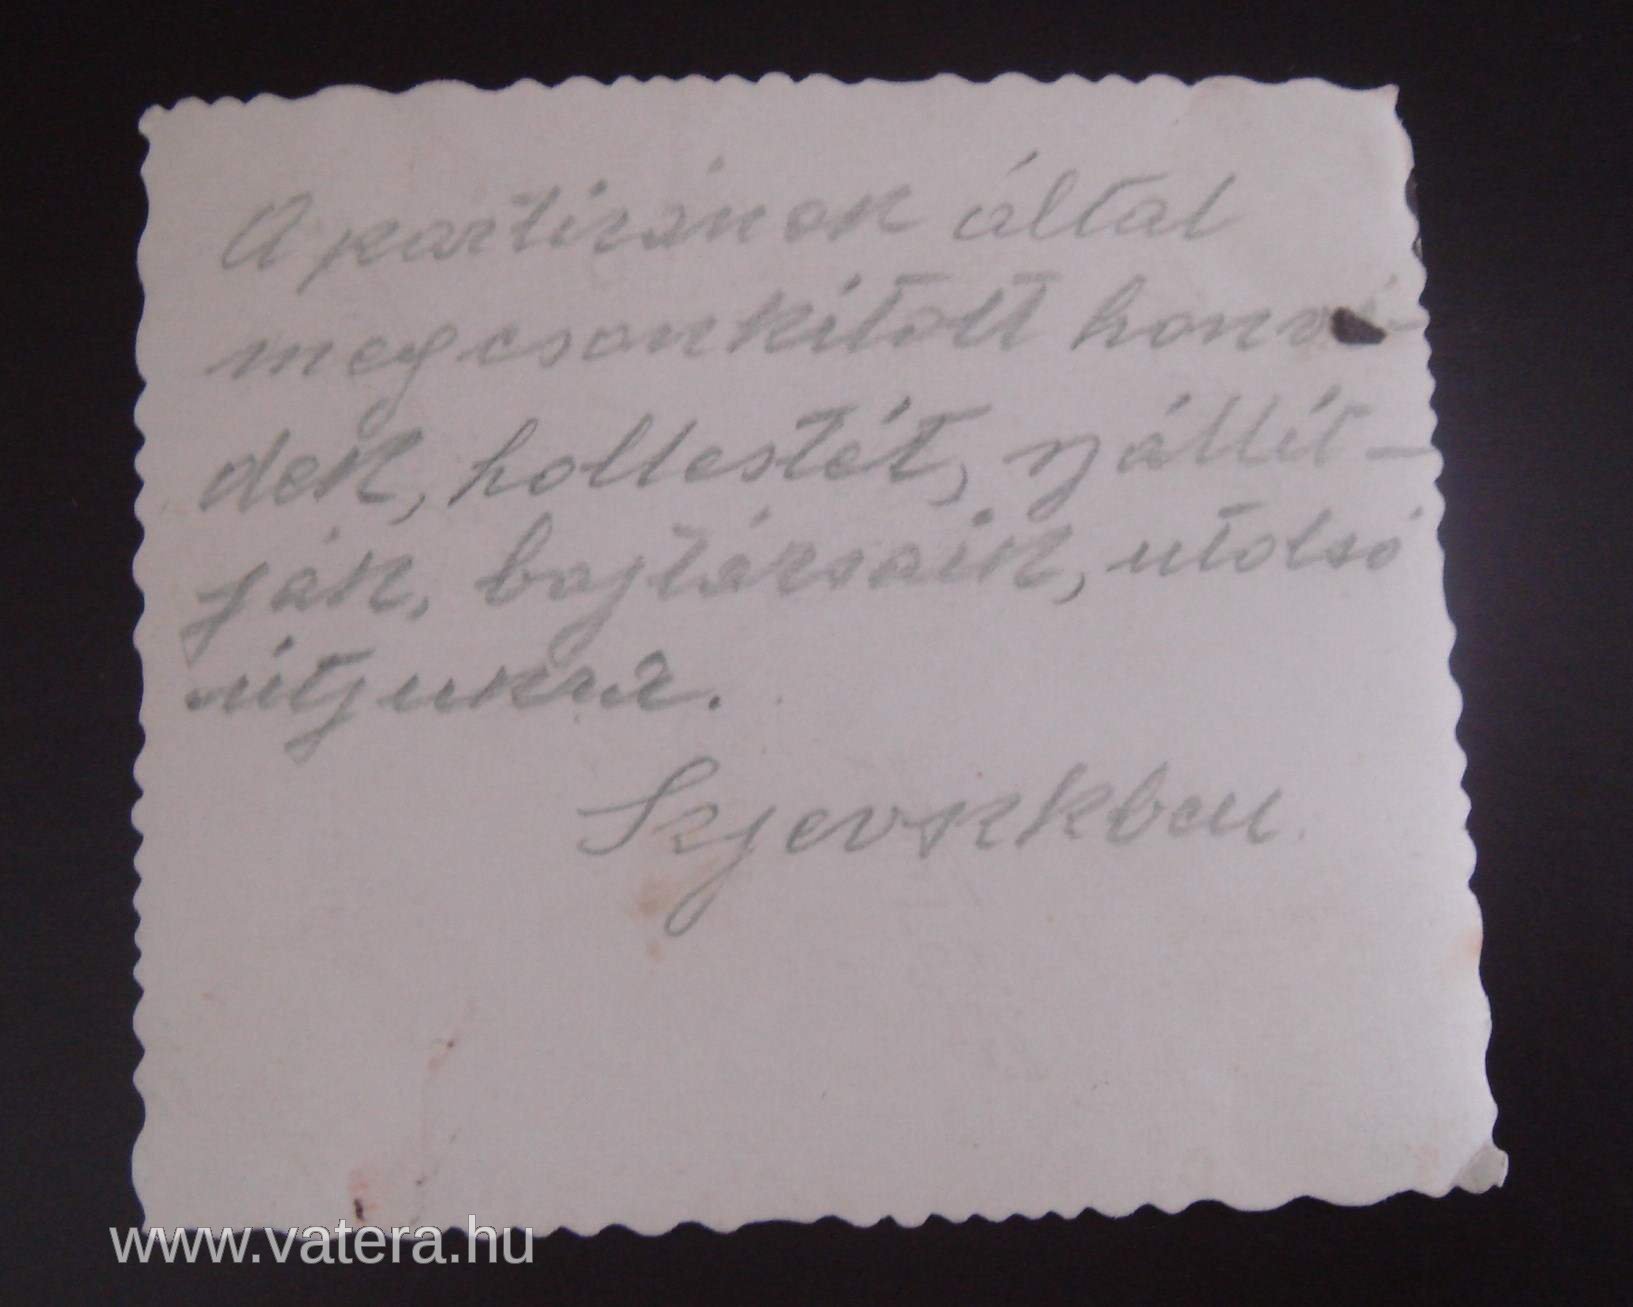 A partizánok által
megcsonkított honvé-
dek, hollestét, szállít-
ják, bajtársaik, utolsó
útjukra.
Szjevskben
www.vatera.hu